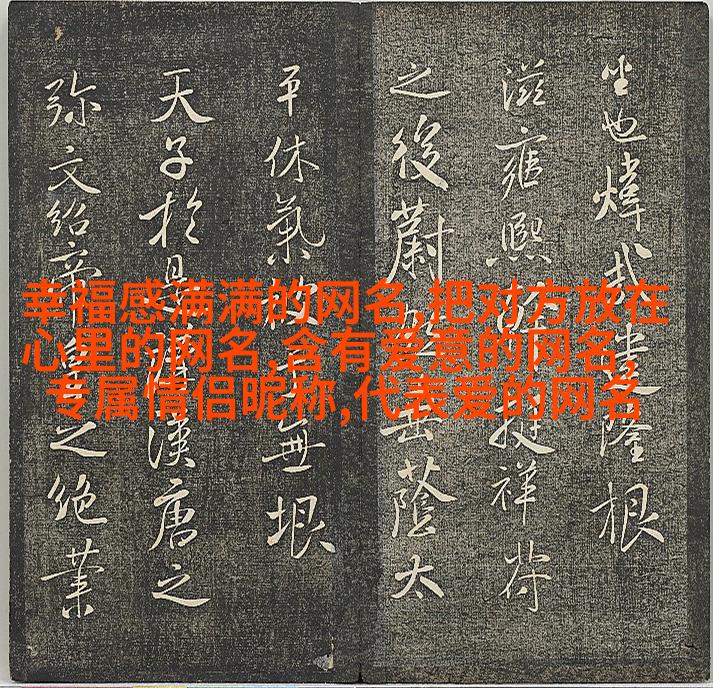 也煒哉隆根
滋雍熙挺祥符
之後蔚蔭太
平休氣無垠
天子於是漢唐之
弥文紹帝之絶業
幸福感满满的网名,把对方放在
心里的网名,含有爱意的网名,
专属情侣昵称,代表爱的网名